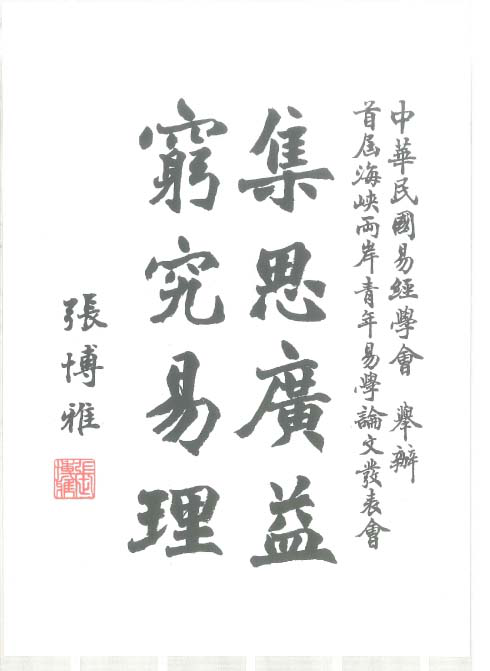 中華民國易經學會 舉辦
首屆海峽兩岸青年易學論文發表會
集思廣益
窮究易理
張博雅
張博雅